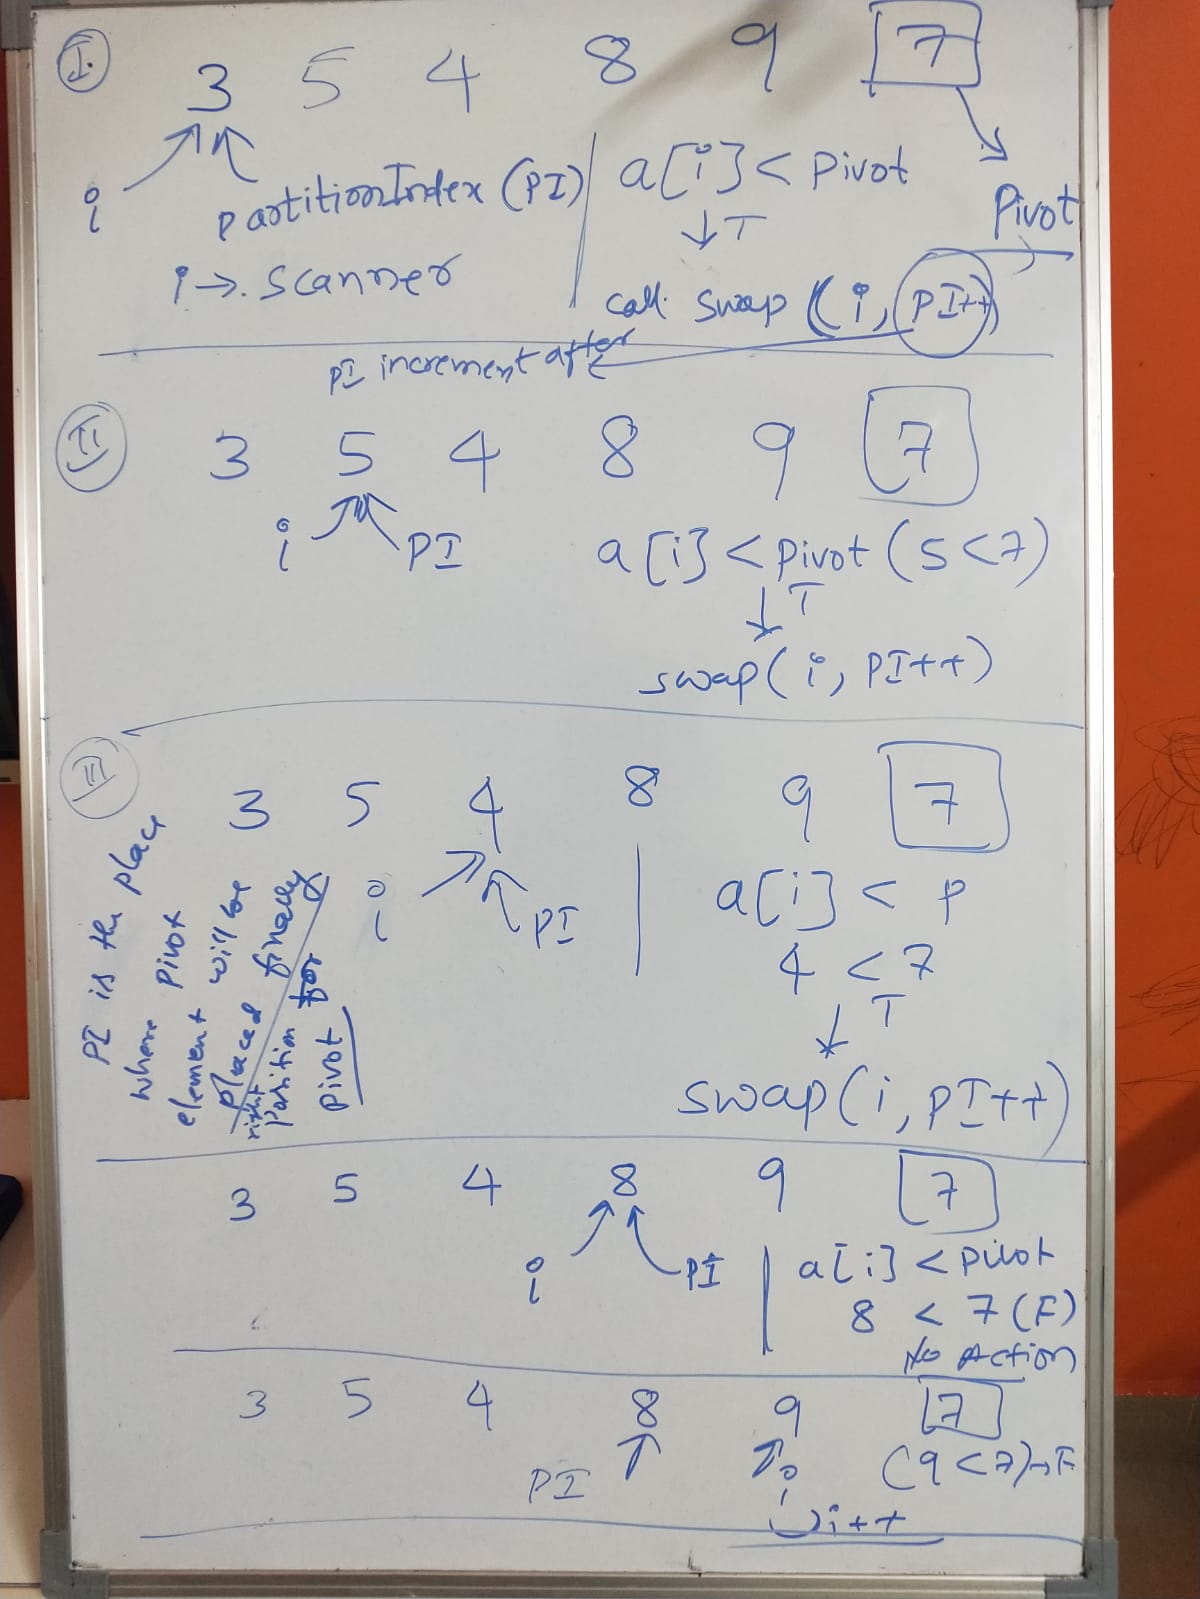 I.
3 5 4 8 9 7
i
PartitionIndex (PI)
i → Scanner
a[i] < Pivot
↓ T
call swap (i, PI++)
Pivot
PI increment after
II
3 5 4 8 9 7
i PI
a[i] < Pivot (5<7)
↓ T
swap(i, PI++)
III
3 5 4 8 9 7
i PI
a[i] < P
4 < 7
↓ T
swap(i, PI++)
PI is the place
where pivot
element will be
placed finally
right
Position for
pivot
3 5 4 8 9 7
i PI
a[i] < pivot
8 < 7 (F)
No Action
3 5 4 8 9 7
PI i
(9<7)→F
i++